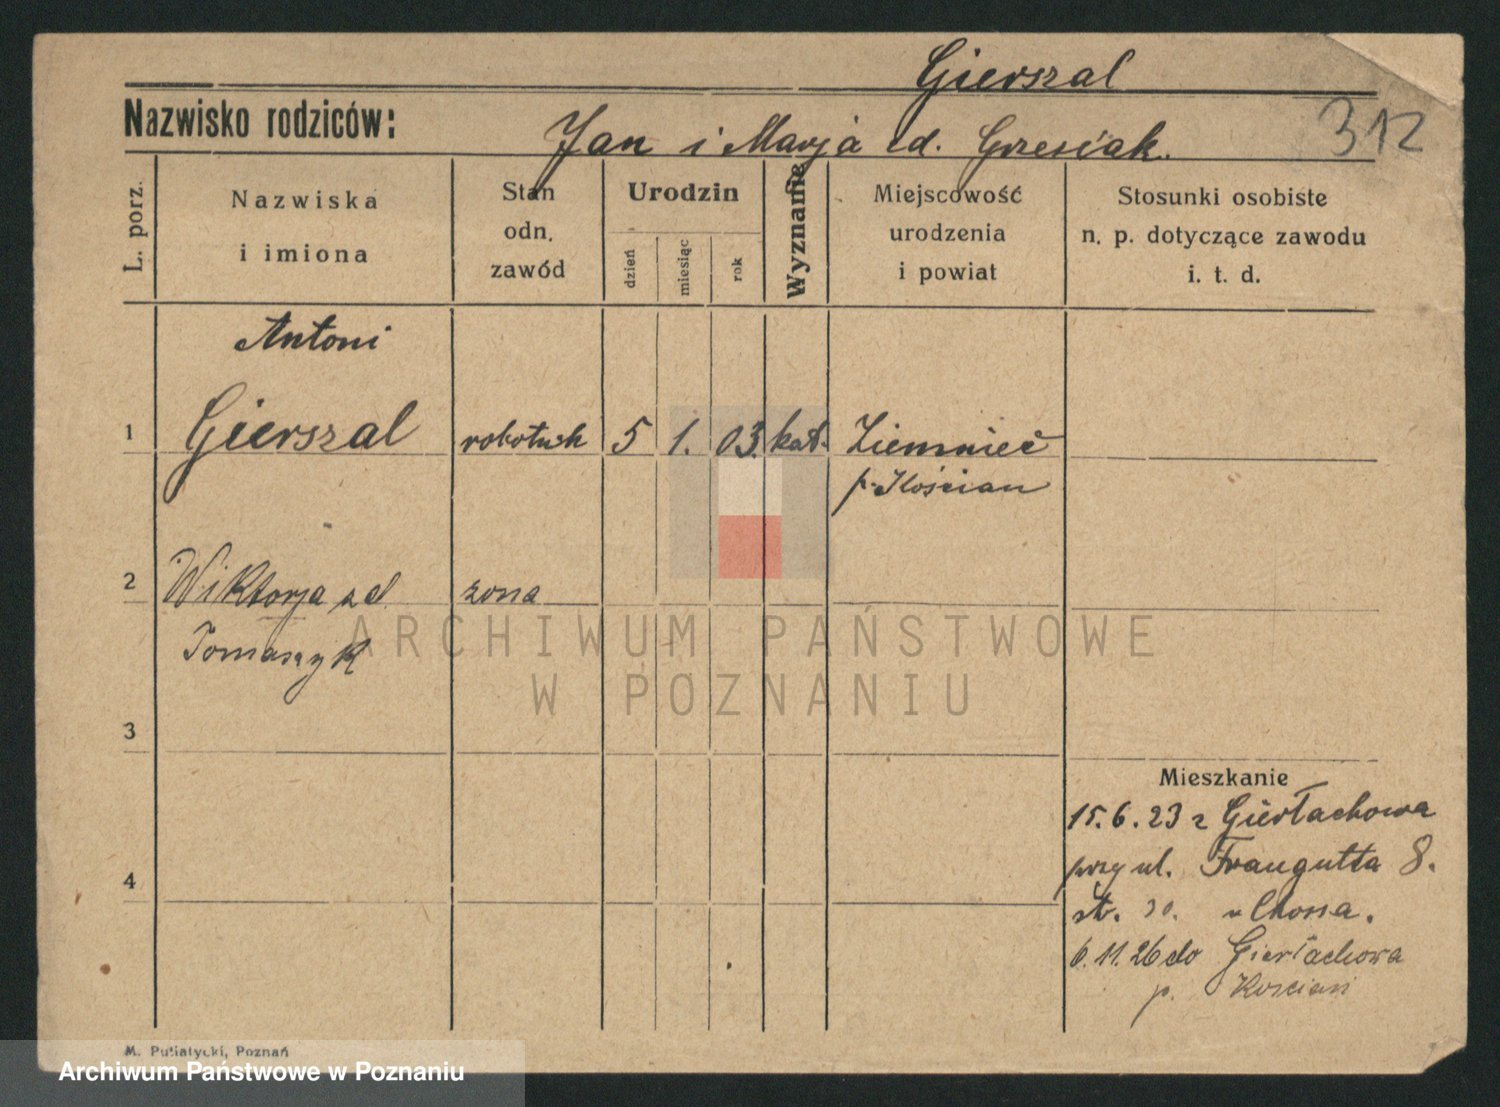 Gierszal
Nazwisko rodziców:
Jan i Marja zd. Grzesiak.
312
L. porz.
Nazwiska
i imiona
Stan
odn.
zawód
Urodzin
dzień
miesiąc
rok
Wyznanie
Miejscowość
urodzenia
i powiat
Stosunki osobiste
n. p. dotyczące zawodu
i. t. d.
Antoni
1 Gierszal robotnik 5 1. 03. kat. Ziemnice
p. Kościan
2 Wiktorja zd żona
Tomaszyk
ARCHIWUM PAŃSTWOWE
W POZNANIU
3
Mieszkanie
15.6.23 z Gierłachowa
przy ul. Traugutta 8.
4
str. 30. u
6.11.26 do Gierłachowa
p. Kościan
M. Putiatycki, Poznań
Archiwum Państwowe w Poznaniu